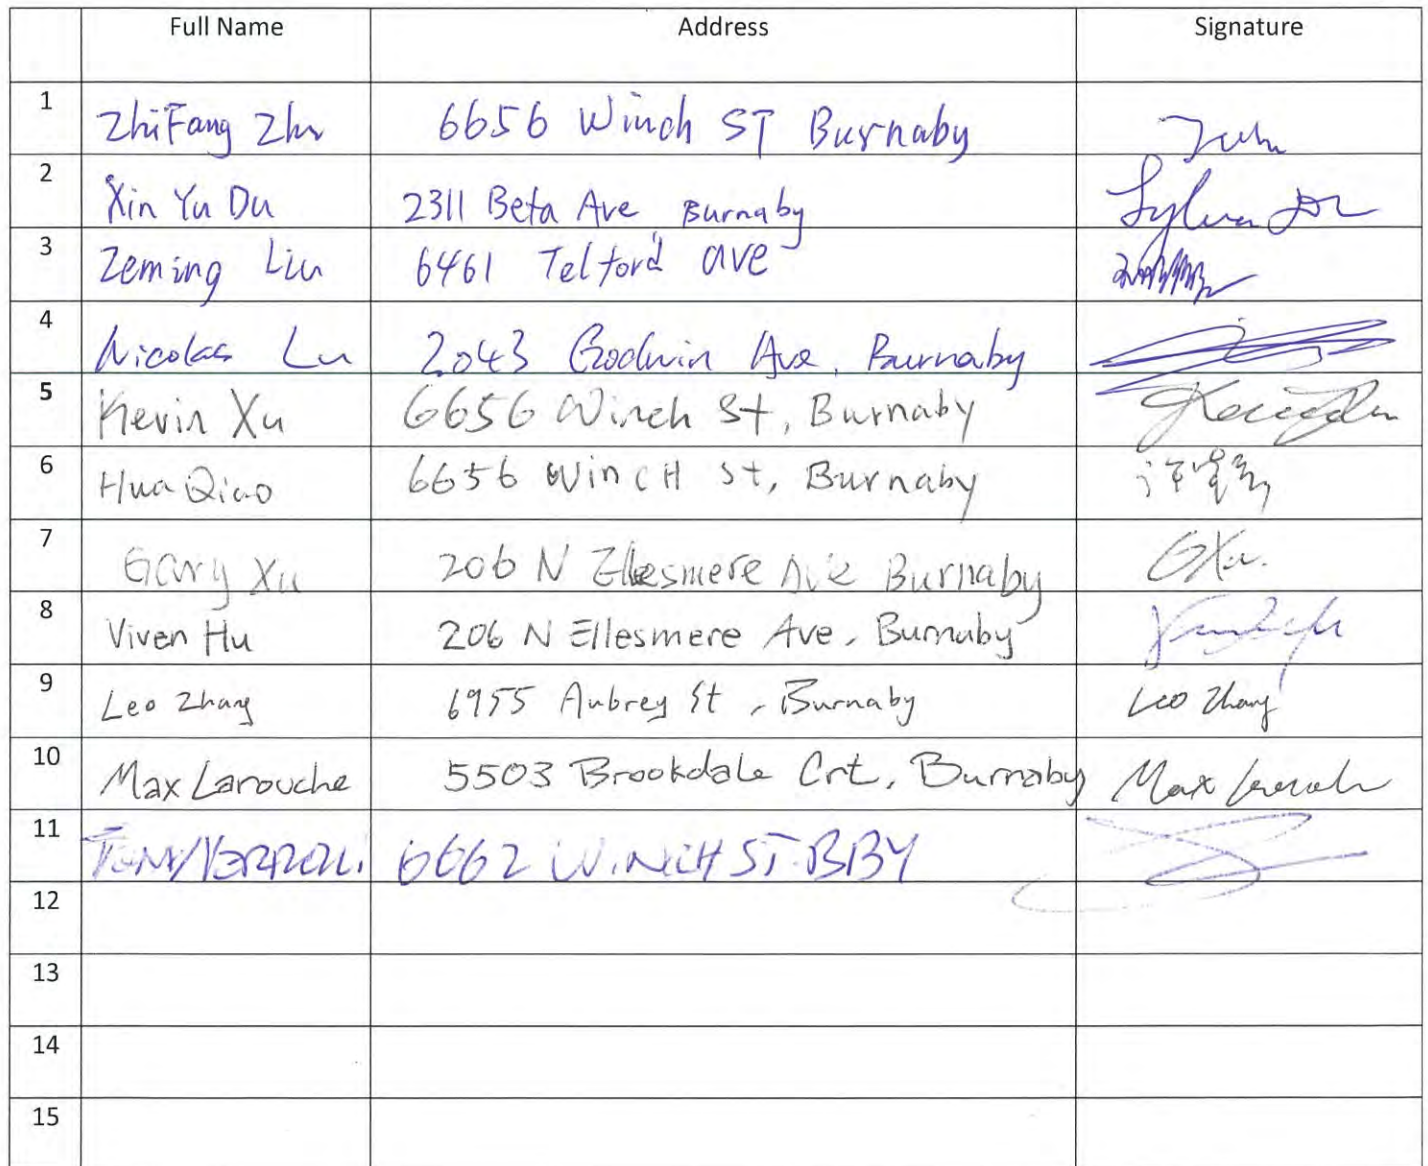 Full Name Address Signature
1 ZhiFang Zhu 6656 Winch ST Burnaby
2 Xin Yu Du 2311 Beta Ave Burnaby
3 Zeming Liu 6461 Telford ave
4 Nicolas Lu 2043 Goodwin Ave, Burnaby
5 Kevin Xu 6656 Winch St, Burnaby
6 Hua Qiao 6656 WincH St, Burnaby
7 Gary Xu 206 N Ellesmere Ave Burnaby GXu.
8 Viven Hu 206 N Ellesmere Ave, Burnaby
9 Leo Zhang 6955 Aubrey St, Burnaby Leo Zhang
10 Max Larouche 5503 Brookdale Crt, Burnaby Max
11 TONY 6662 WINCH ST. BBY
12
13
14
15